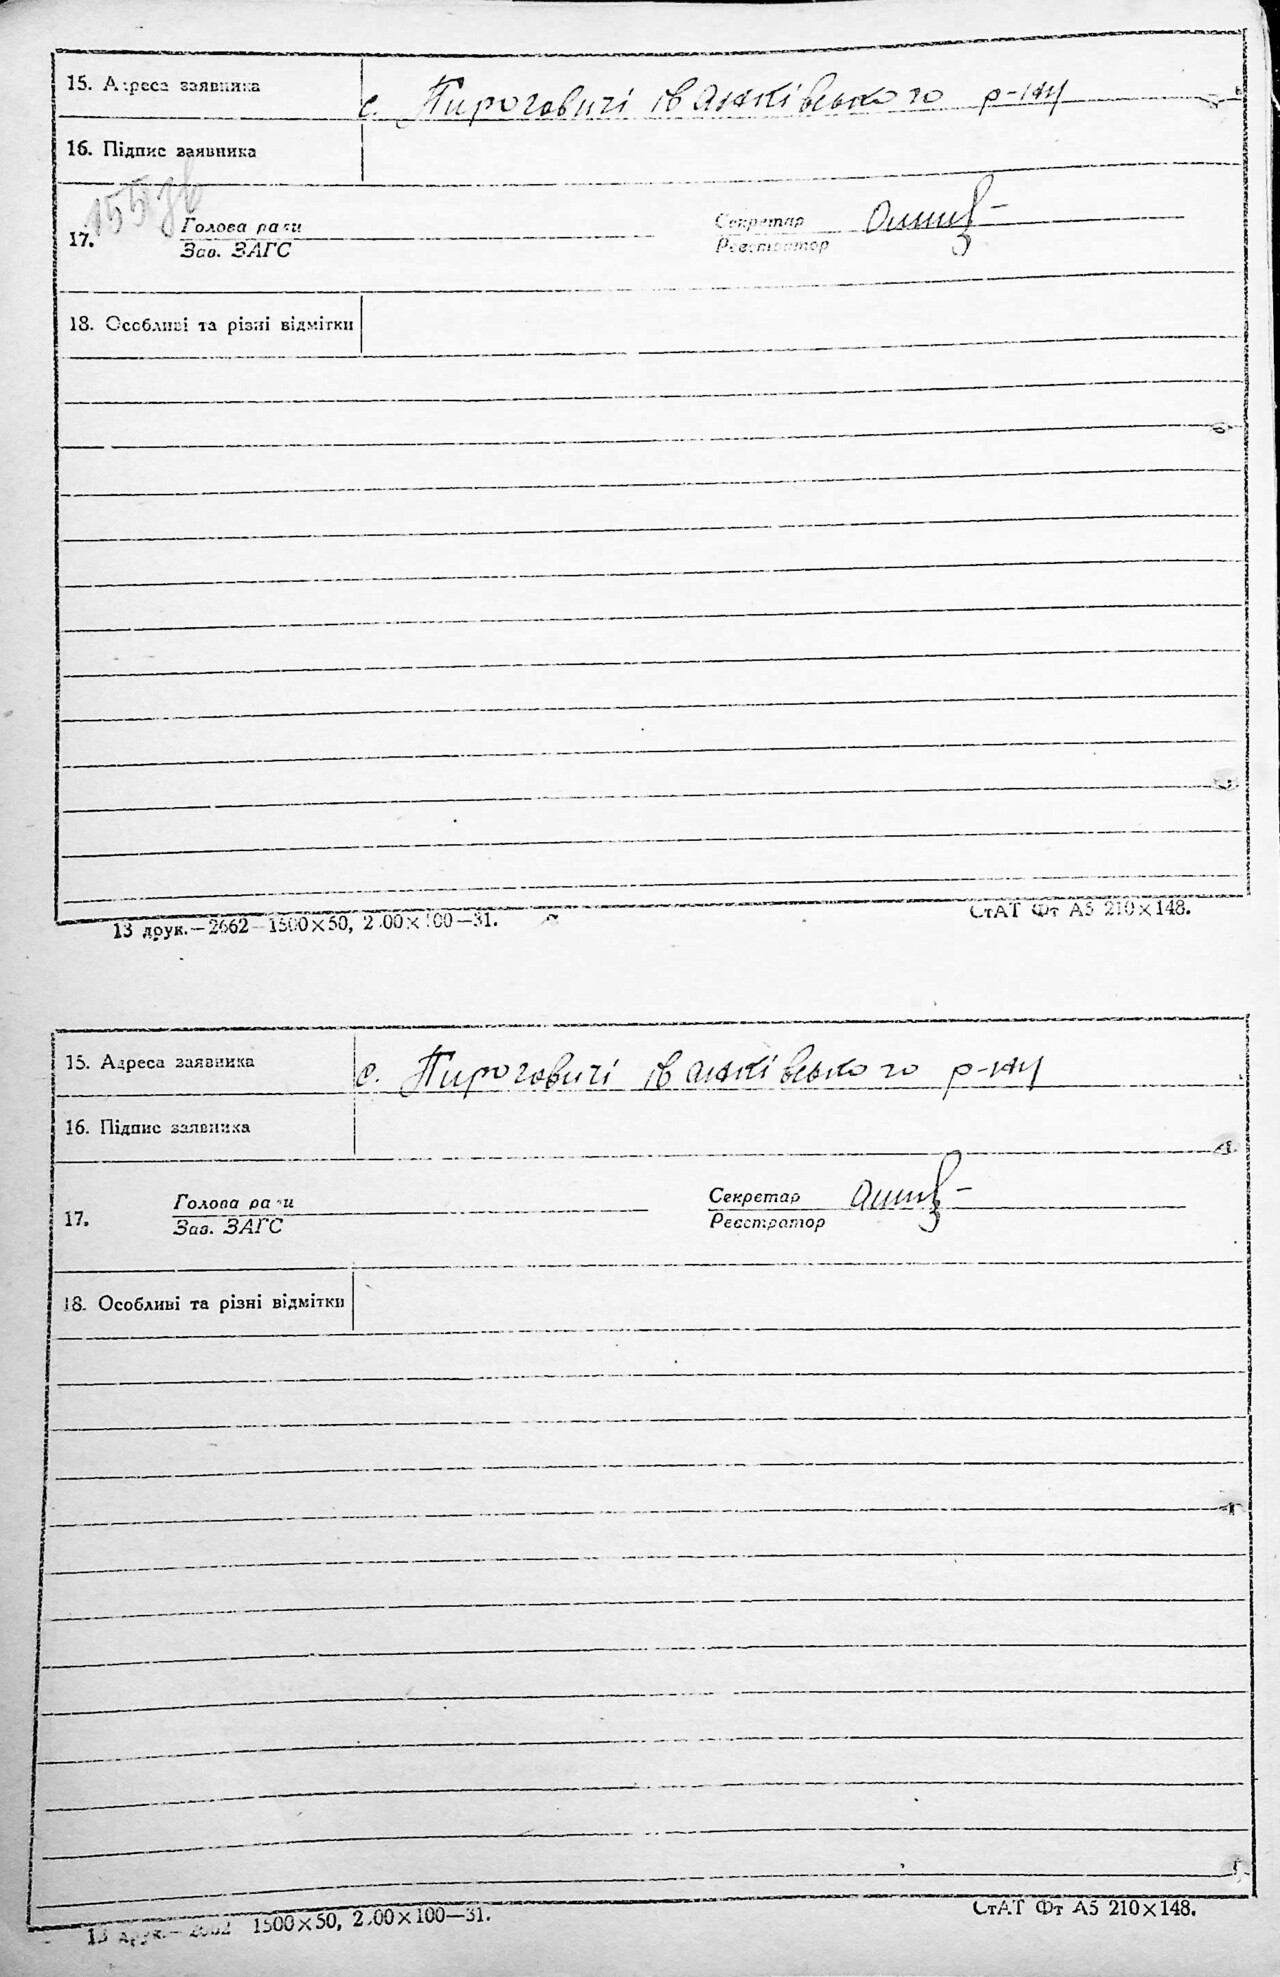 15. Адреса заявника с. Пироговичі Іванківського р-ну
16. Підпис заявника
155 зв
17. Голова ради Секретар
Зав. ЗАГС Реєстратор
18. Особливі та різні відмітки
13 друк.—2662—1500×50, 2.00×100—31. СтАТ Фт А5 210×148.
15. Адреса заявника с. Пироговичі Іванківського р-ну
16. Підпис заявника
17. Голова ради Секретар
Зав. ЗАГС Реєстратор
18. Особливі та різні відмітки
13 друк.—2662 1500×50, 2.00×100—31. СтАТ Фт А5 210×148.